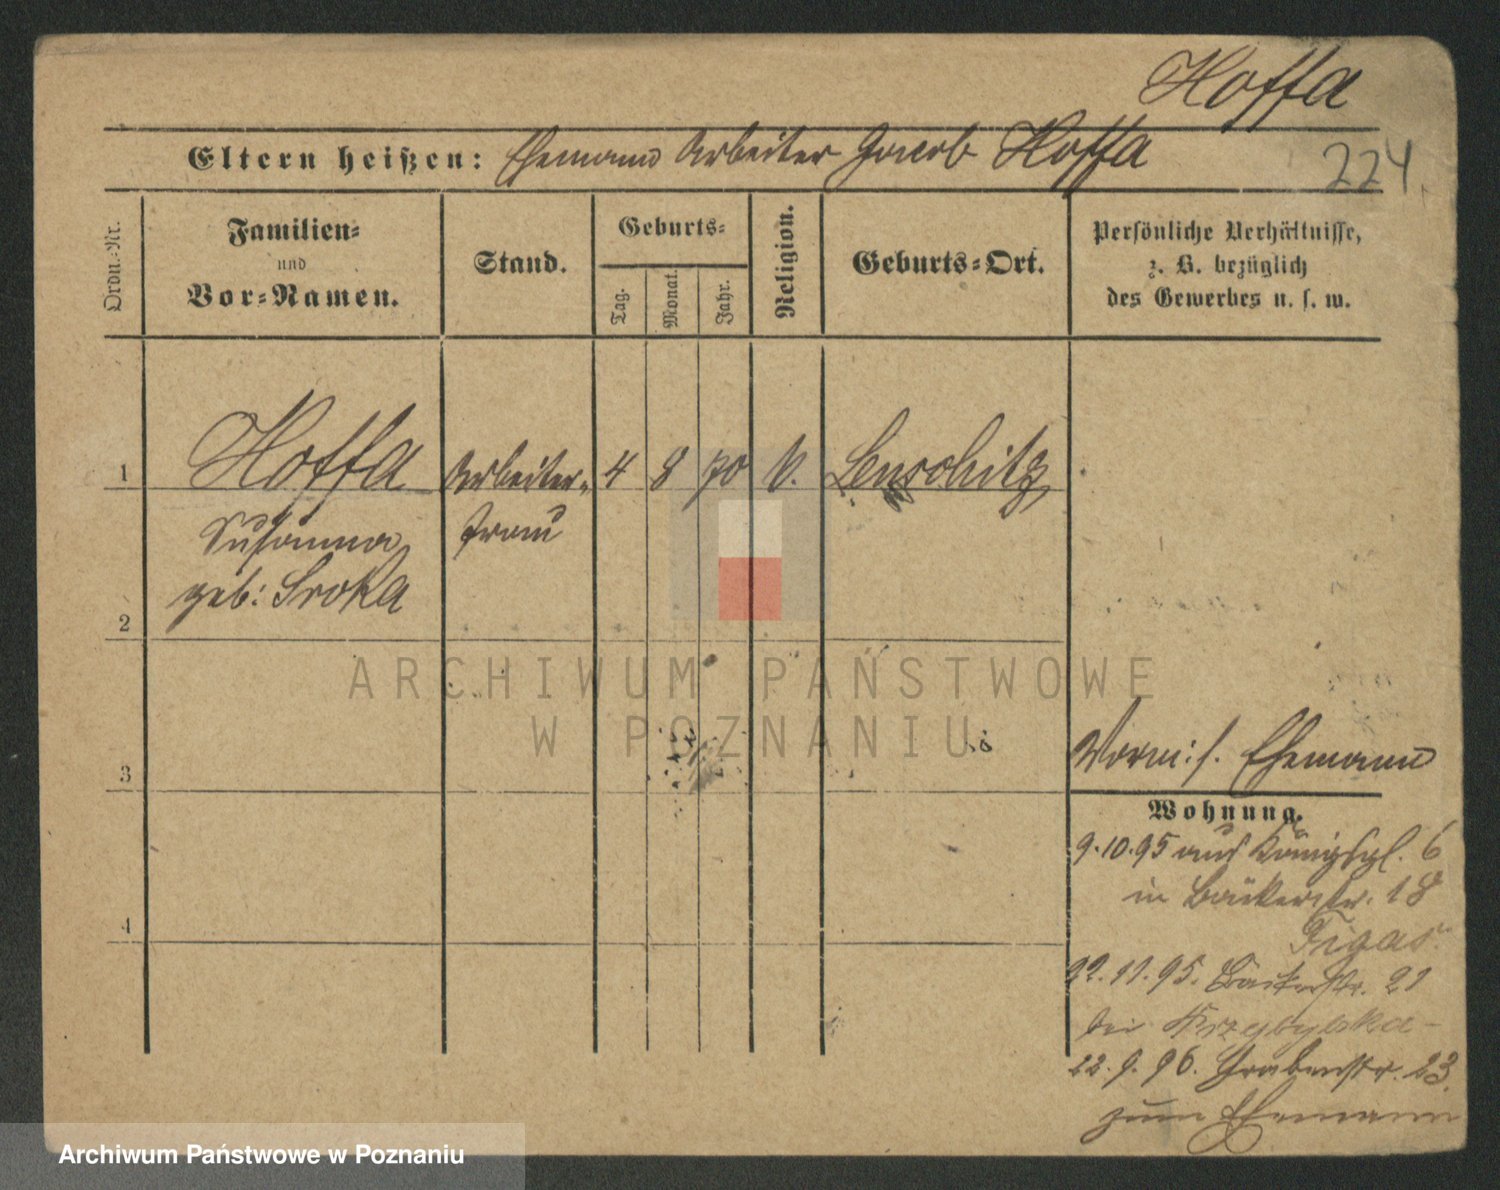 Hoffa
Eltern heißen: Ehemann Arbeiter Jacob Hoffa
224
Ordn.-Nr.
Familien-
und
Vor-Namen.
Stand.
Geburts-
Tag.
Monat.
Jahr.
Religion.
Geburts-Ort.
Persönliche Verhältnisse,
z. B. bezüglich
des Gewerbes u. s. w.
1 Hoffa Arbeiter- 4 8 70 k. Lenschitz
Susanna frau
geb: Sroka
2
3
4
Vorm: s. Ehemann
Wohnung.
9.10.95 aus Königspl. 6
in Bäckerstr. 18
Figas.
22.11.95. Bäckerstr. 21
bei Przybylska
22.9.96. Grabenstr. 23.
zum Ehemann
ARCHIWUM PAŃSTWOWE
W POZNANIU
Archiwum Państwowe w Poznaniu